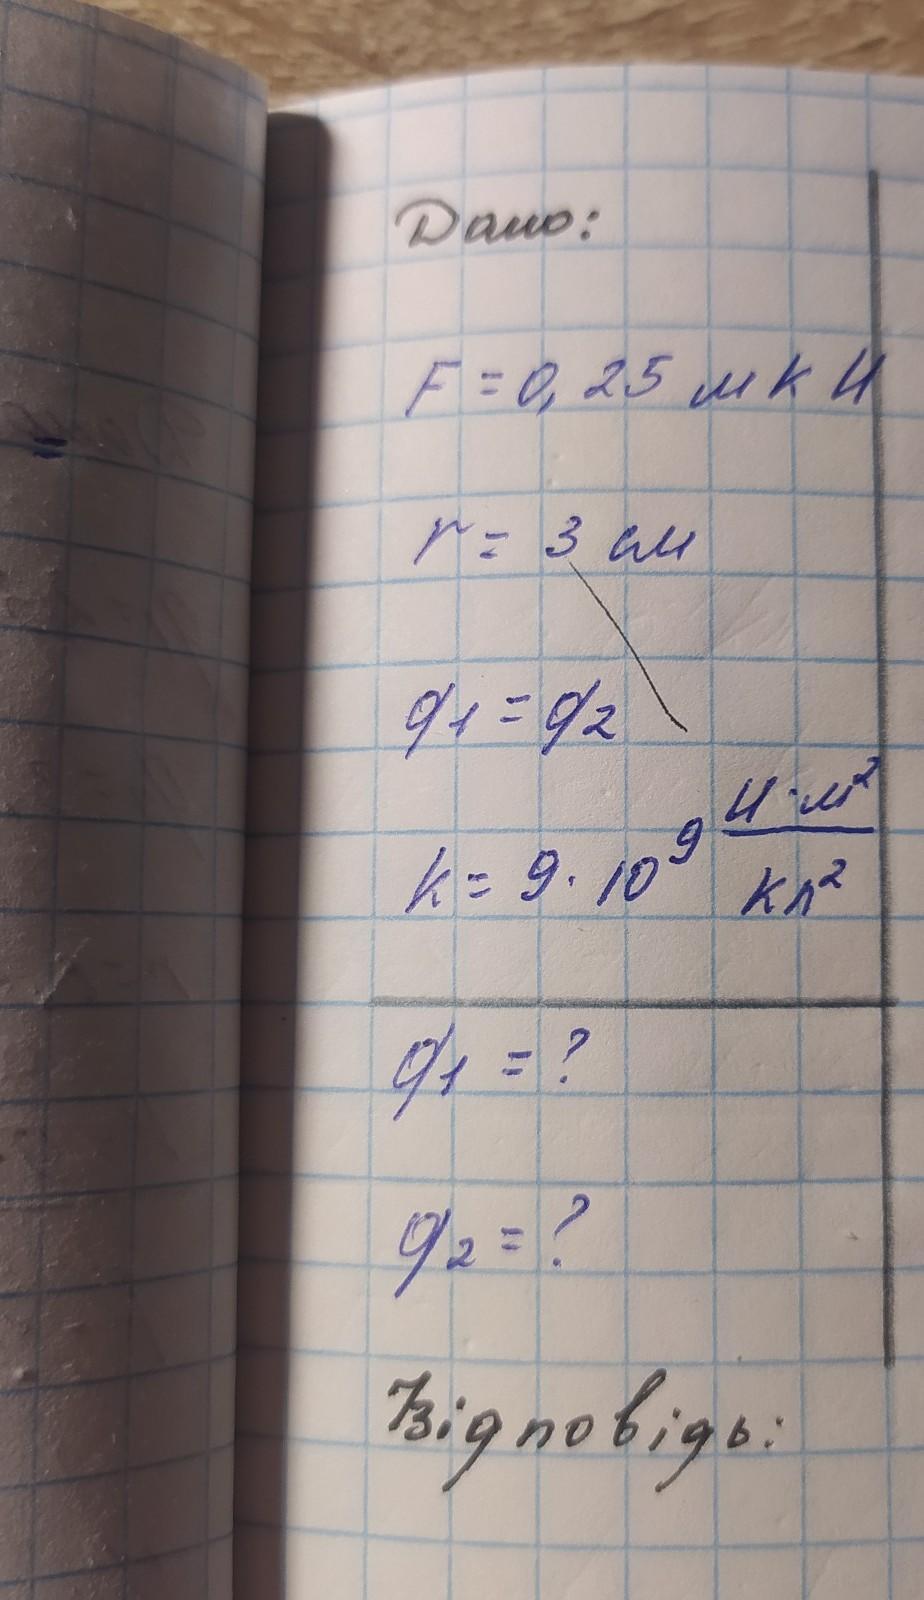 Дано:
F = 0,25 мкН
r = 3 см
q1 = q2
k = 9 · 10⁹ Н·м²/кл²
q1 = ?
q2 = ?
Відповідь: